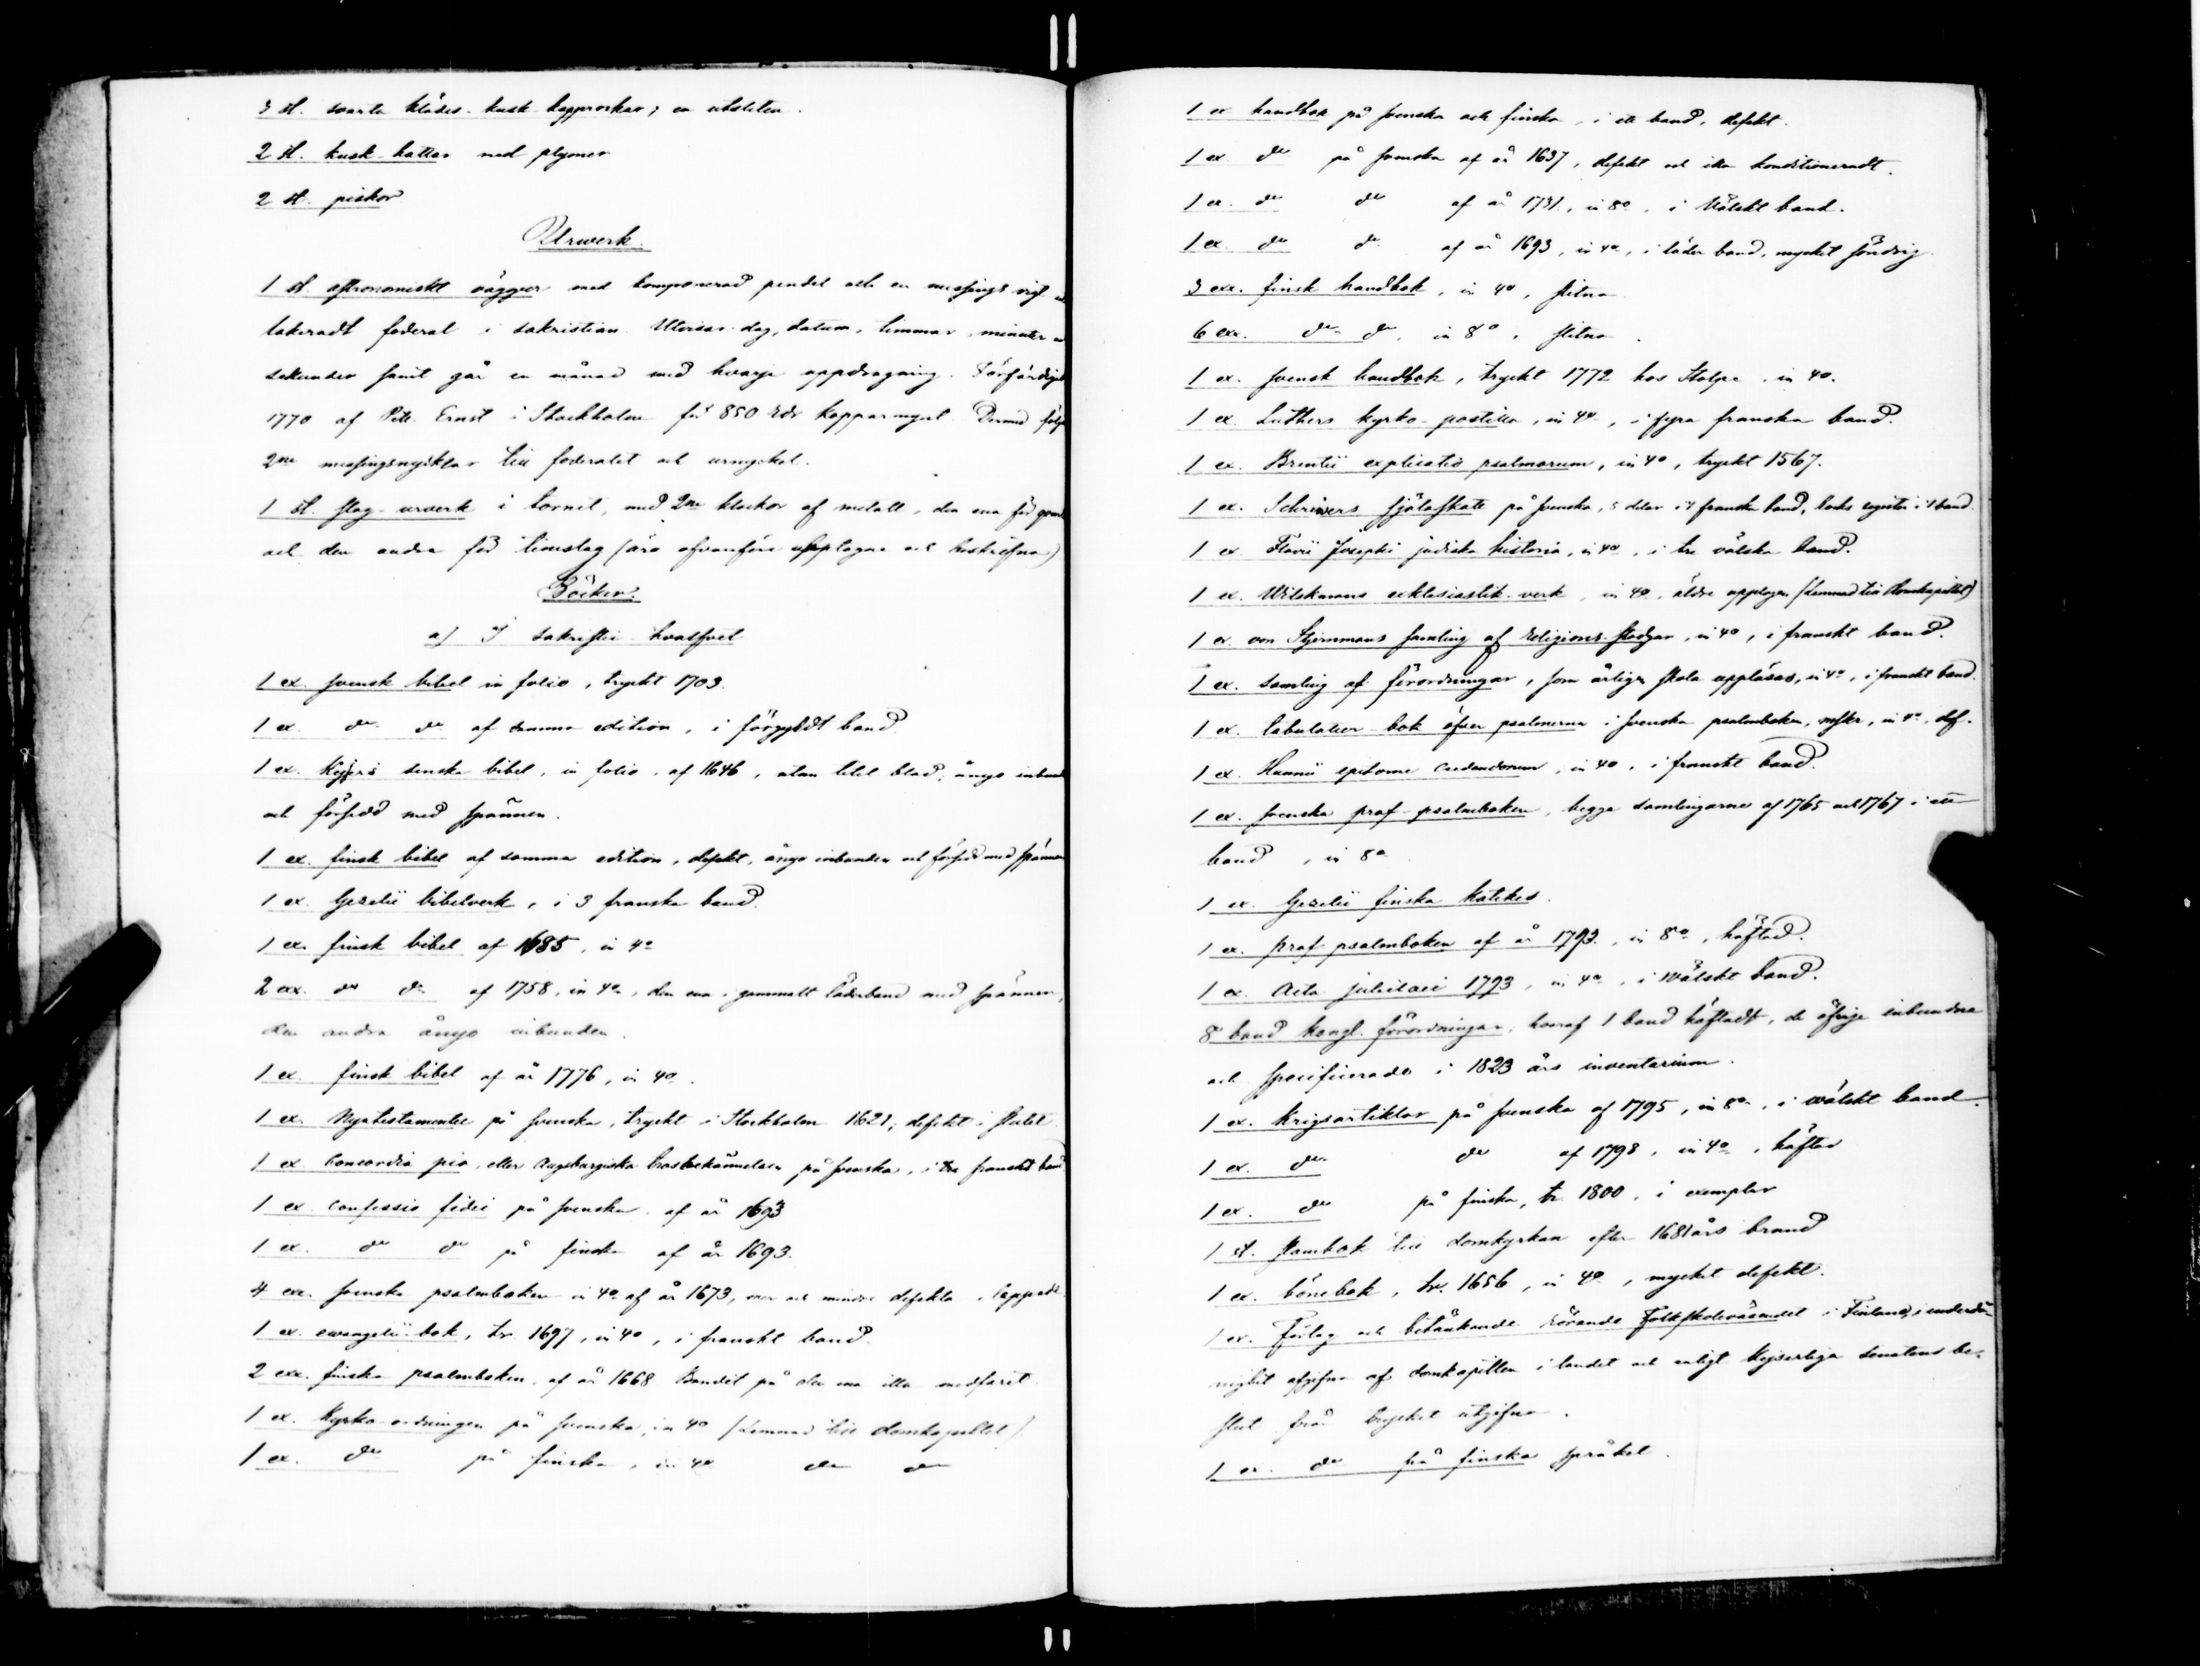 3 st. svarta klädes-kusk-kapprockar; en utsliten.
2 st. kusk-hattar med plymer
2 st. piskor
Urwerk.
1 st. astronomiskt väggur med komponerad pendel och en messings vigt
lakeradt foderal i sakristian. Utvisar dag, datum, timmar, minuter
sekunder samt går en månad med hvarje uppdragning. Förfärdigad
1770 af Pet. Ernst i Stockholm för 850 rdr kopparmynt. Dermed följa
2ne messingsnycklar till foderalet och urnyckel.
1 st. slag-urverk i tornet, med 2ne klockor af metall, den ena för
och den andra för timslag (äro ofvanföre upptagna och beskrifna)
Böcker.
a) I sakristie-hvalfvet
1 ex. svensk bibel in folio, tryckt 1703.
1 ex. do do af samma edition, i förgyldt band
1 ex. svenska bibel, in folio, af 1646, utan titel blad, ånyo
och försedd med spännen.
1 ex. finsk bibel af samma edition, defekt, ånyo inbunden och försedd med spännen
1 ex. Gezelii bibelverk, i 3 franska band.
1 ex. finsk bibel af 1685, in 4o
2 exx. do do af 1758, in 4o, den ena i gammalt läderband med spännen,
den andra ånyo inbunden.
1 ex. finsk bibel af år 1776, in 4o.
1 ex. Nyatestamentet på svenska, tryckt i Stockholm 1621, defekt i slutet
1 ex. Concordia pia, eller Augsburgiska trosbekännelsen på svenska, i franskt band
1 ex. confessio fidei på svenska af år 1693
1 ex. do do på finska af år 1693.
4 exx. svenska psalmboken in 4o af år 1673, mer och mindre defekta,
1 ex. evangelii-bok, tr. 1697, in 4o, i franskt band.
2 exx. finska psalmboken, af år 1668 Bandet på den ena illa medfaret
1 ex. Kyrko-ordningen på svenska, in 4o (Lemnad till domkapitlet)
1 ex. do på finska, in 4o do do
1 ex handbok på svenska och finska, i ett band, defekt.
1 ex do på svenska af år 1637, defekt och illa konditioneradt.
1 ex. do do af år 1731, in 8o, i Wälskt band.
1 ex. do do af år 1693, in 4o, i läder band, mycket söndrig.
3 exx. finsk handbok, in 4o, slitna
6 exx. do do, in 8o, slitna.
1 ex. svensk handbok, tryckt 1772 hos Stolpe, in 4o.
1 ex. Luthers kyrko-postilla, in 4o, i fyra franska band.
1 ex. Brentii explicatio psalmorum, in 4o, tryckt 1567.
1 ex. Schrivers själaskatt på svenska, 5 delar i 4 franska band, register i 1 band.
1 ex. Flavii Josephi judiska historia, in 4o, i tre välska band.
1 ex. Wilskmans ecklesiastik-verk, in 4o, äldre upplagan (Lemnad till domkapitlet)
1 ex. von Stjernmans samling af religions-stadgar, in 4o, i franskt band.
1 ex. samling af förordningar, som årligen skola uppläsas, in 4o, i franskt band.
1 ex. tabulatur-bok öfver psalmerna i svenska psalmboken, mskr, in 4o, def.
1 ex. epitome credendorum, in 4o, i franskt band.
1 ex. svenska prof-psalmboken, begge samlingarne af 1765 och 1767 i ett
band, in 8o
1 ex. Gezelii finska katekes.
1 ex. prof-psalmboken af år 1793, in 8o, häftad.
1 ex. Acta jubilaei 1793, in 4o, i wälskt band.
8 band kongl. förordningar, hvaraf 1 band häftadt, de öfrige inbundna
och specificerade i 1823 års inventarium.
1 ex. krigsartiklar på svenska af 1795, in 8o, i wälskt band.
1 ex. do do af 1798, in 4o, häftad
1 ex. do på finska, tr. 1800, i exemplar
1 st. stambok till domkyrkan efter 1681 års brand
1 ex. bönebok, tr. 1656, in 4o, mycket defekt.
1 ex. Förslag och betänkande rörande Folkskoleväsendet i Finland, i underdå-
nighet afgifna af domkapitlen i landet och enligt kejserliga senatens be-
slut från trycket utgifna.
1 ex. do på finska språket.